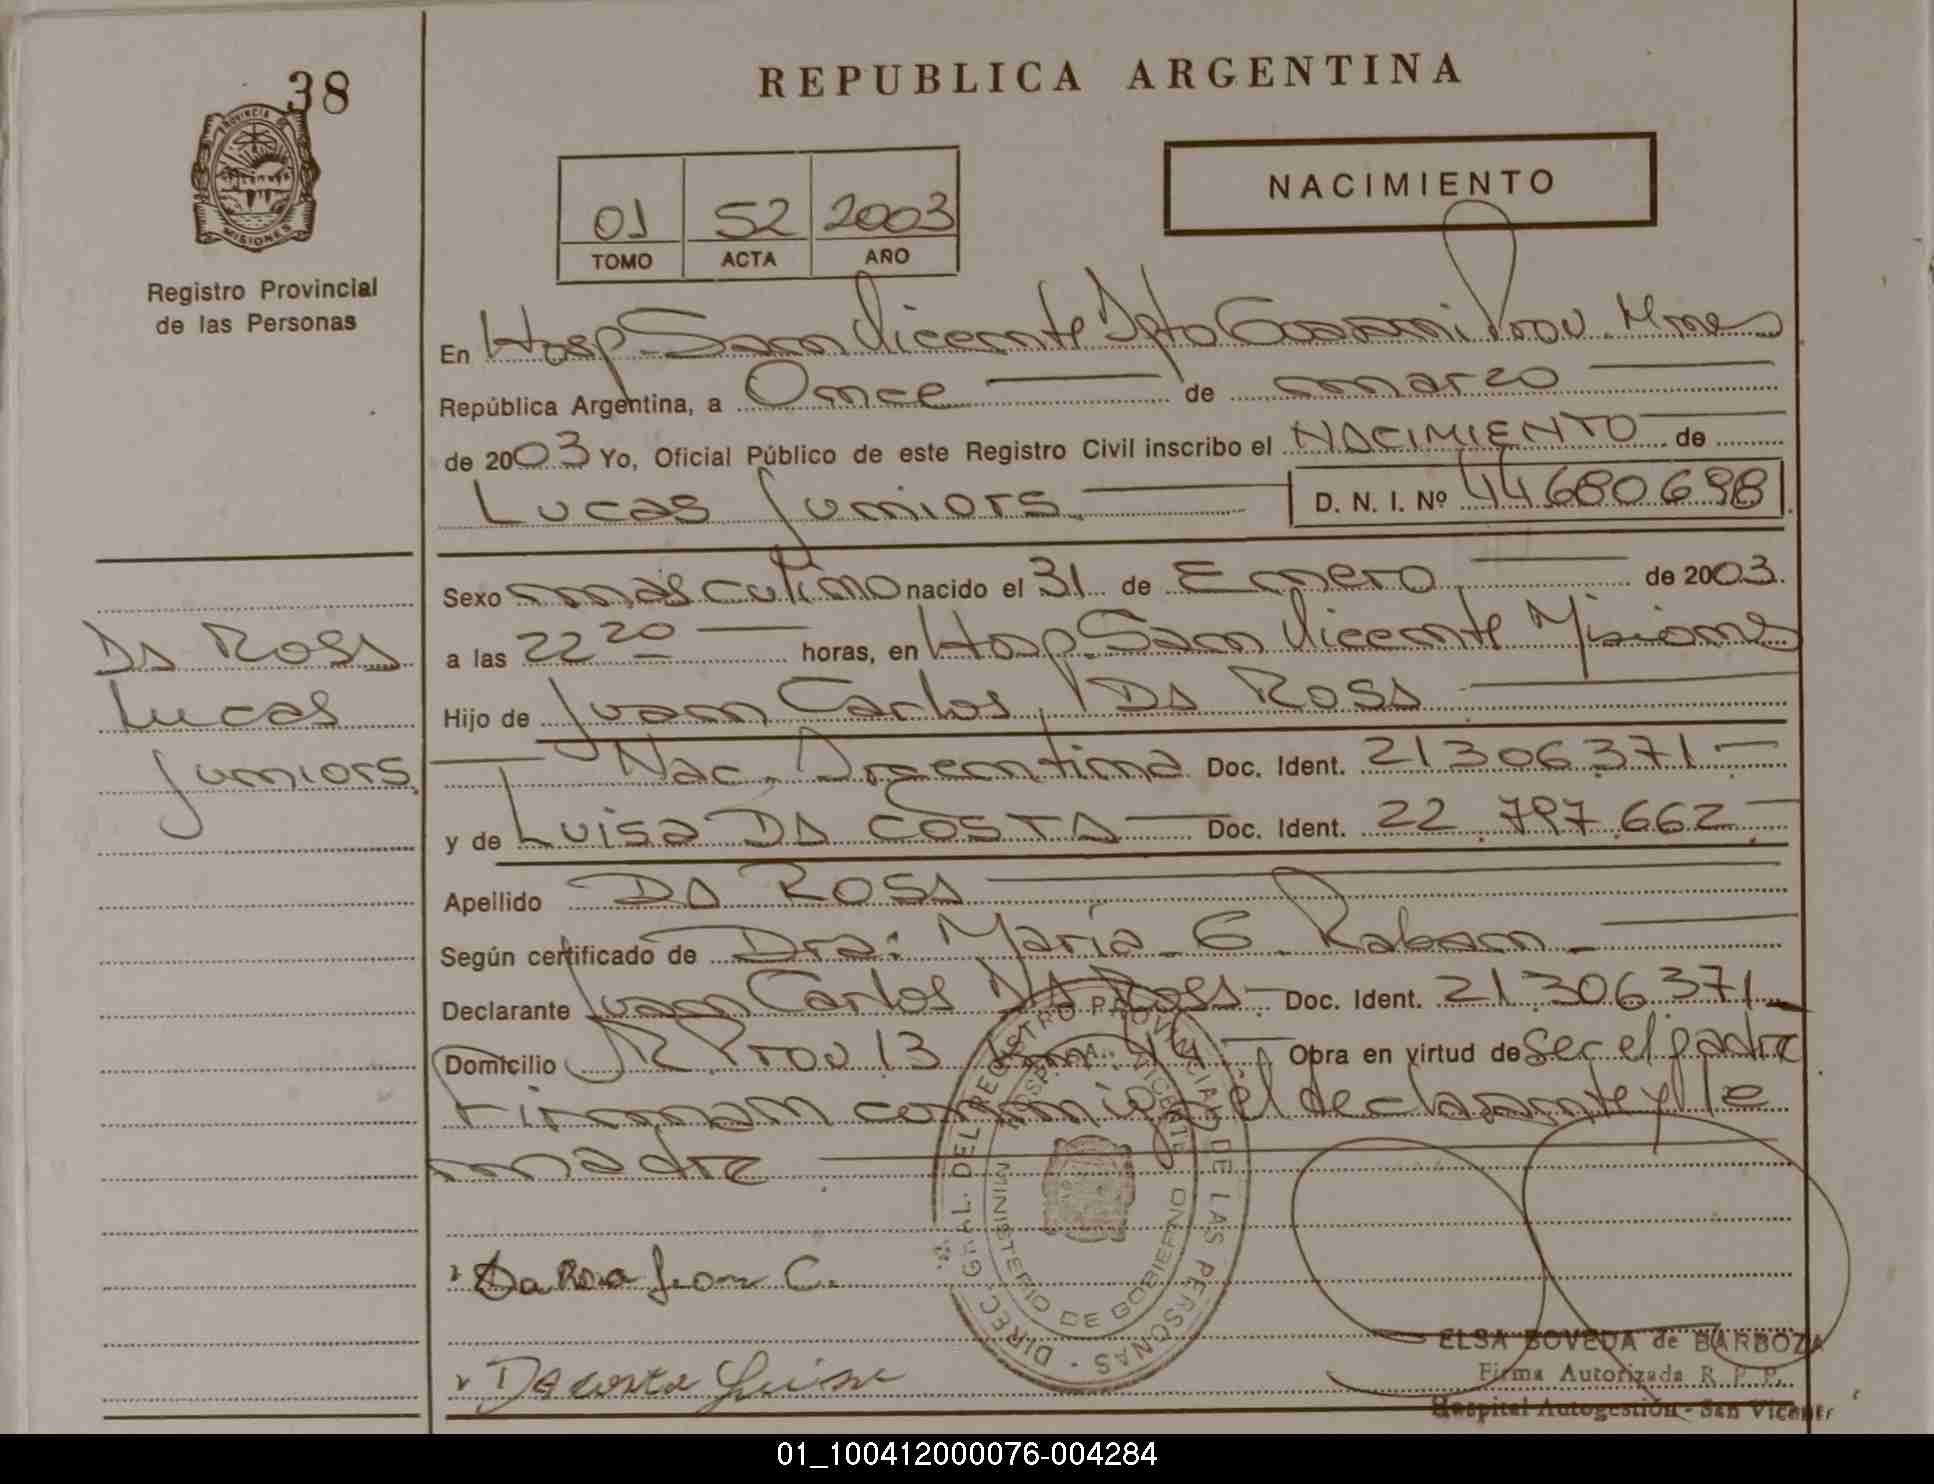 38
PROVINCIA DE
MISIONES
Registro Provincial
de las Personas
REPUBLICA ARGENTINA
NACIMIENTO
01 52 2003
TOMO ACTA AÑO
En Hosp. San Vicente Dpto Guarani Prov. Mnes
República Argentina, a Once de marzo
de 2003 Yo, Oficial Público de este Registro Civil inscribo el NACIMIENTO de
Lucas Juniors. D. N. I. Nº 44680698
Sexo masculino nacido el 31 de Enero de 2003.
a las 22 20 horas, en Hosp. San Vicente Misiones
Hijo de Juan Carlos, DA ROSA
Nac. Argentina Doc. Ident. 21306371
y de Luisa DA COSTA Doc. Ident. 22.797.662
Apellido DA ROSA
Según certificado de Dra: María G. Raban
Declarante Juan Carlos DA ROSA Doc. Ident. 21.306.371
Domicilio R Prov 13 Km 14 Obra en virtud de ser el padre
Firman conmigo el declarante y la
madre
DA ROSA
Lucas
Juniors.
Da Rosa Juan C.
Da costa Luisa
DIREC. GRAL. DEL REGISTRO PROVINCIAL DE LAS PERSONAS
HOSP. A. S. VICENTE
MINISTERIO DE GOBIERNO
ELSA BOVEDA de BARBOZA
Firma Autorizada R. P. P.
Hospital Autogestión - San Vicente
01_100412000076-004284